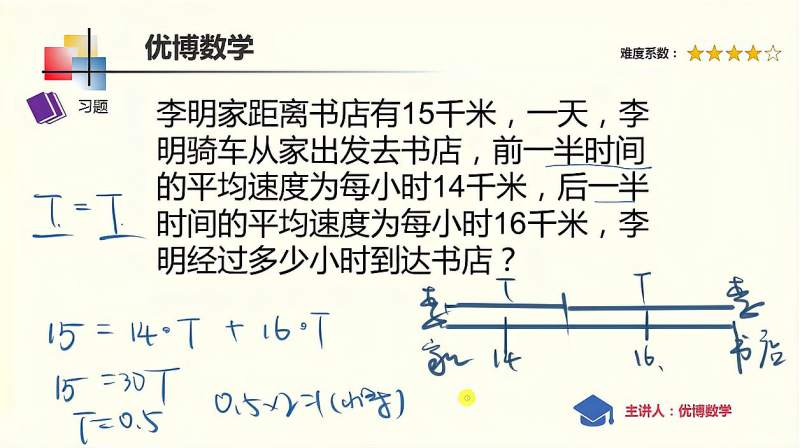 优博数学
难度系数：
习题
李明家距离书店有15千米，一天，李
明骑车从家出发去书店，前一半时间
的平均速度为每小时14千米，后一半
时间的平均速度为每小时16千米，李
明经过多少小时到达书店？
T = T
李 T T 李
家 14 16 书店
15 = 14·T + 16·T
15 = 30T
T=0.5
0.5×2=1(小时)
主讲人：优博数学